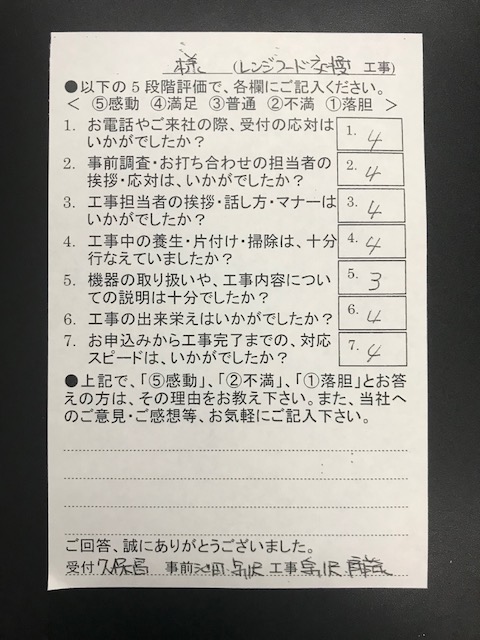 様 (レンジフード交換 工事)
●以下の5段階評価で、各欄にご記入ください。
< ⑤感動 ④満足 ③普通 ②不満 ①落胆 >
1. お電話やご来社の際、受付の応対は
いかがでしたか?
1. 4
2. 事前調査・お打ち合わせの担当者の
挨拶・応対は、いかがでしたか?
2. 4
3. 工事担当者の挨拶・話し方・マナーは
いかがでしたか?
3. 4
4. 工事中の養生・片付け・掃除は、十分
行なえていましたか?
4. 4
5. 機器の取り扱いや、工事内容につい
ての説明は十分でしたか?
5. 3
6. 工事の出来栄えはいかがでしたか?
6. 4
7. お申込みから工事完了までの、対応
スピードは、いかがでしたか?
7. 4
●上記で、「⑤感動」、「②不満」、「①落胆」とお答
えの方は、その理由をお教え下さい。また、当社へ
のご意見・ご感想等、お気軽にご記入下さい。
ご回答、誠にありがとうございました。
受付 事前 工事